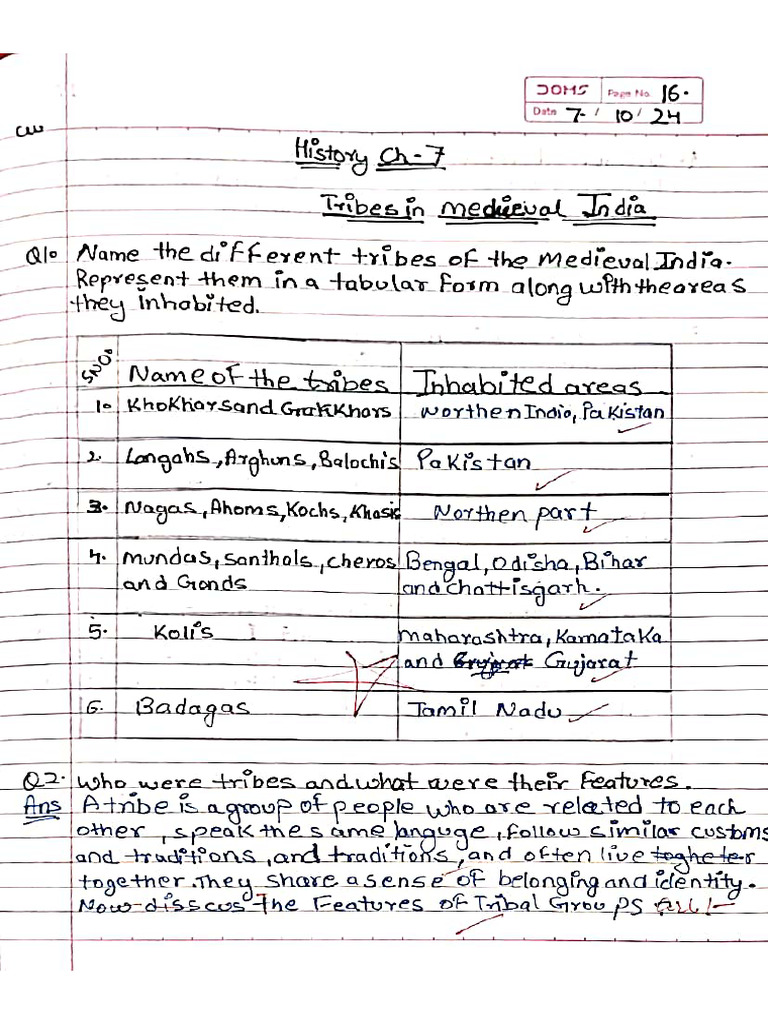 DOMS Page No. 16.
Date 7 / 10 / 24
CW
History Ch-7
Tribes in medieval India
Q1. Name the different tribes of the Medieval India.
Represent them in a tabular form along with the areas
they inhabited.
SNO. Name of the tribes Inhabited areas
1. Khokhars and Grakkhars Northen India, Pakistan
2. Langahs, Arghuns, Balochis Pakistan
3. Nagas, Ahoms, Kochs, Khasis Northen part
4. Mundas, Santhals, Cheros Bengal, Odisha, Bihar
and Gonds and Chattisgarh.
5. Kolis Maharashtra, Karnataka
and Gujarat Gujarat
6. Badagas Tamil Nadu
Q2. Who were tribes and what were their Features.
Ans A tribe is a group of people who are related to each
other, speak the same languge, follow similar customs
and traditions, and traditions, and often live togheter
together. They share a sense of belonging and identity.
Now disscus The Features of Tribal Groups